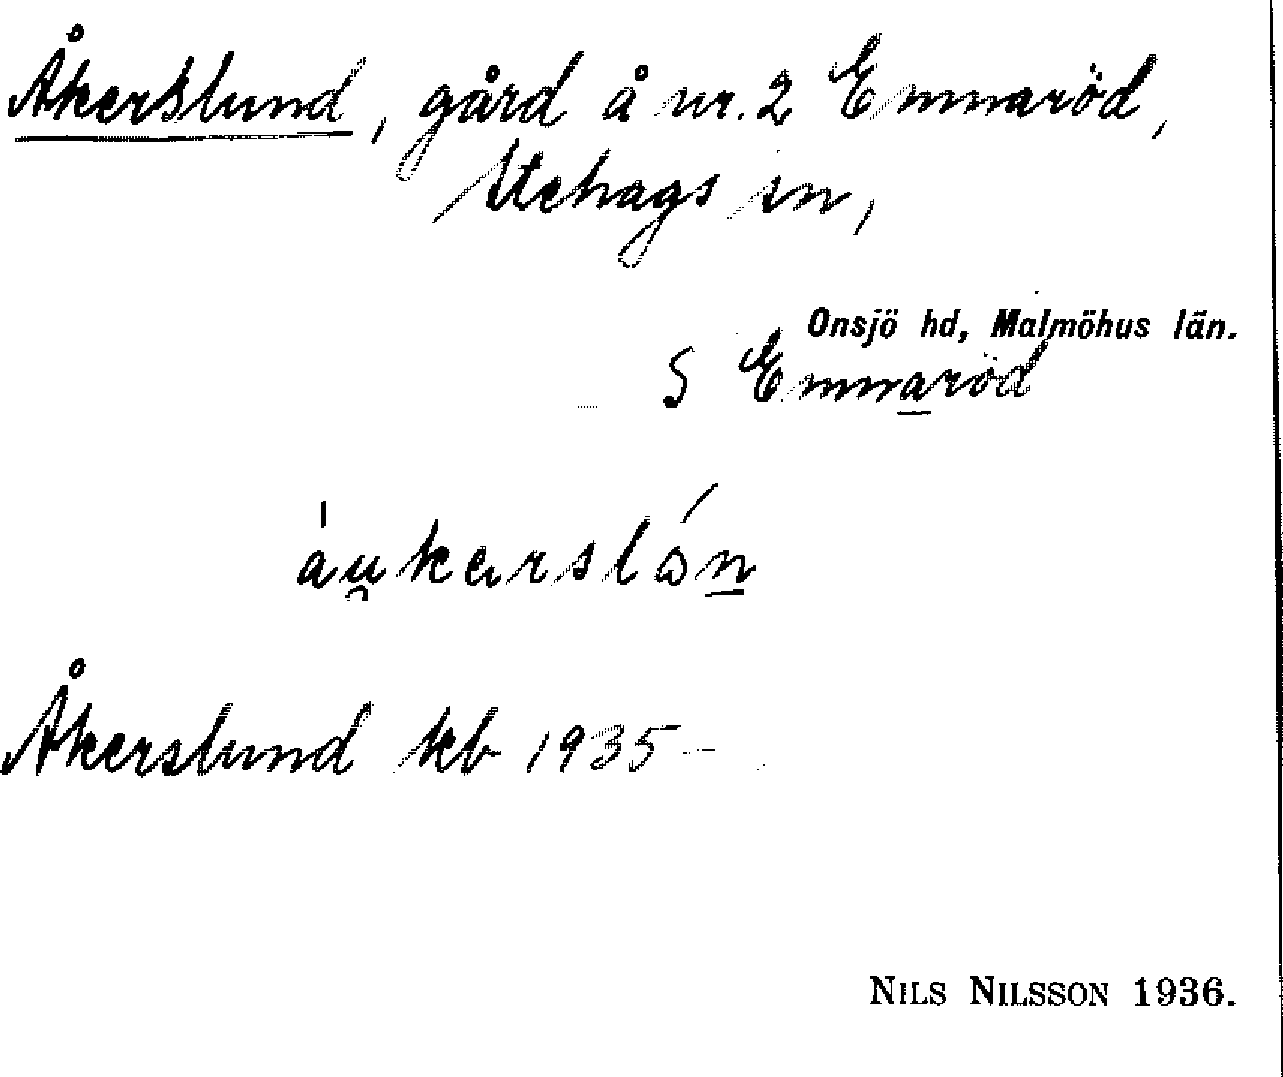 Åkerslund, gård å nr. 2 Emmaröd,
Stehags sn,
Onsjö hd, Malmöhus län.
S Emmaröd
áu̯kərslón
Åkerslund kb 1935
NILS NILSSON 1936.